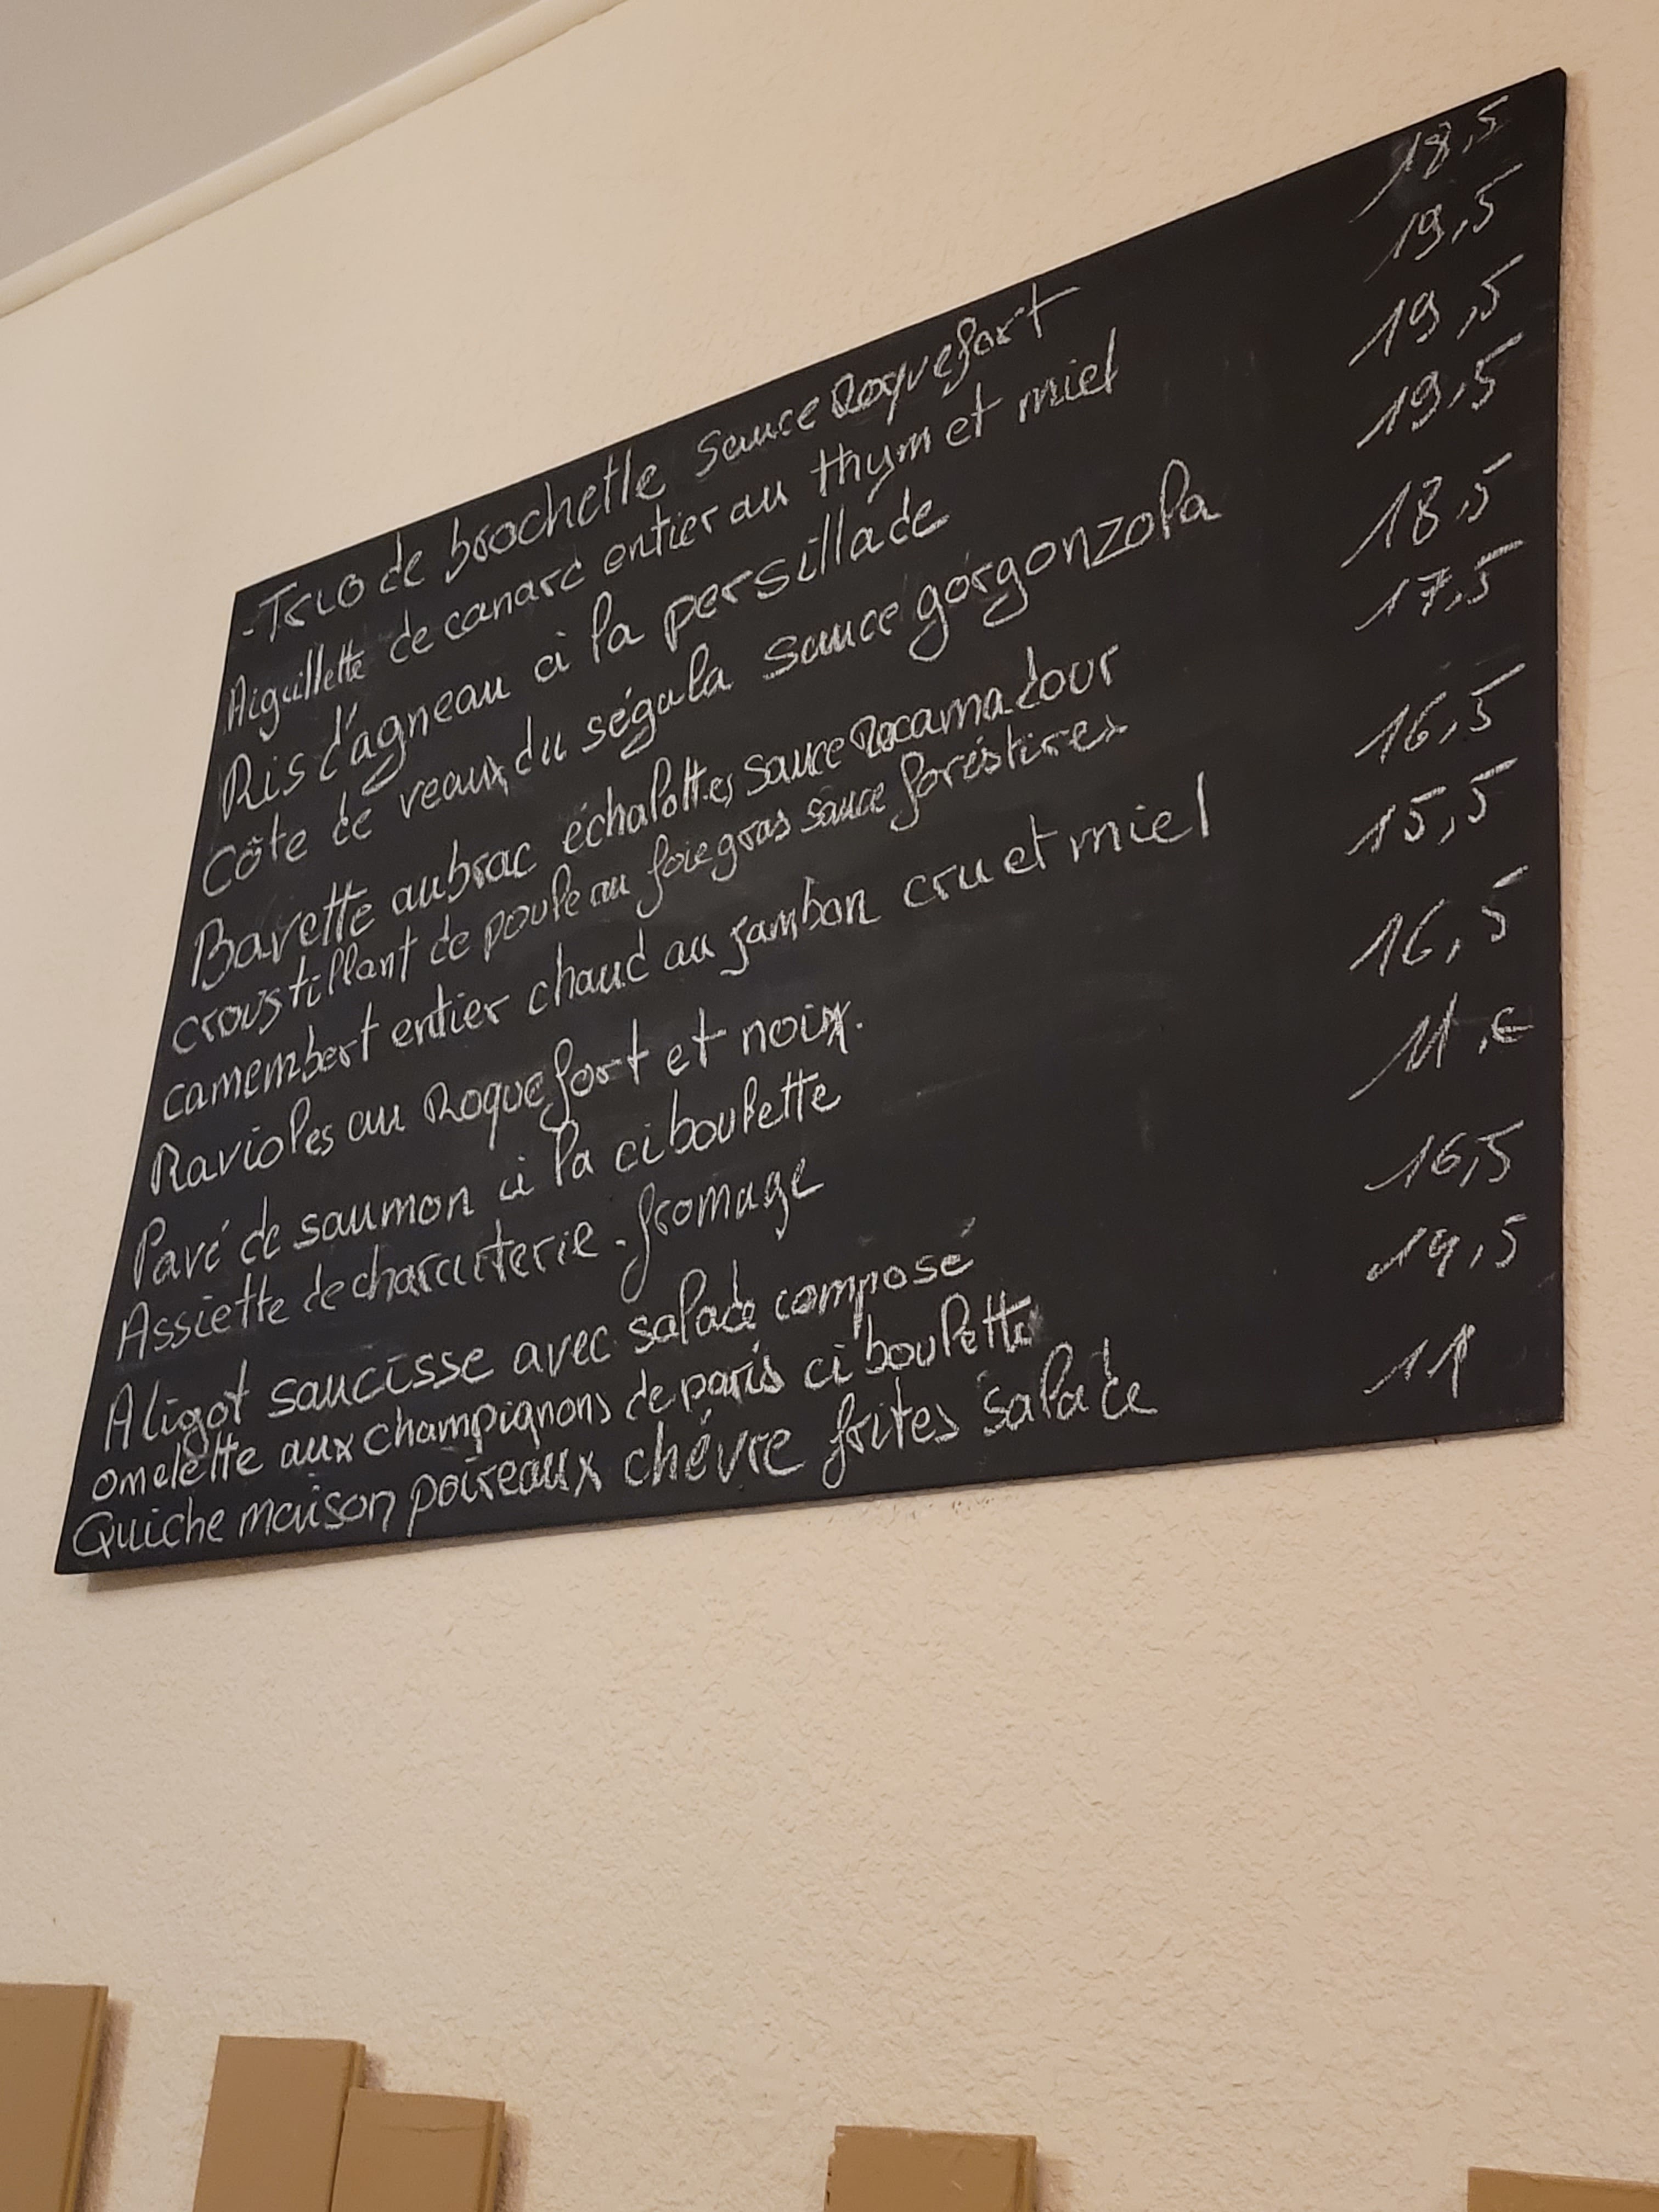 - Trio de brochette sauce Roquefort 18,5
Aiguillette de canard entier au thym et miel 19,5
Ris d'agneau à la persillade 19,5
Côte de veaux du ségala sauce gorgonzola 19,5
Bavette aubrac échalottes sauce Rocamadour 18,5
croustillant de poule au foie gras sauce forestières 17,5
camembert entier chaud au jambon cru et miel 16,5
Ravioles au Roquefort et noix. 15,5
Pavé de saumon à la ciboulette 16,5
Assiette de charcuterie - fromage 11 . €
Aligot saucisse avec salade composé 16,5
omelette aux champignons de paris ciboulette 14,5
Quiche maison poireaux chévre frites salade 11